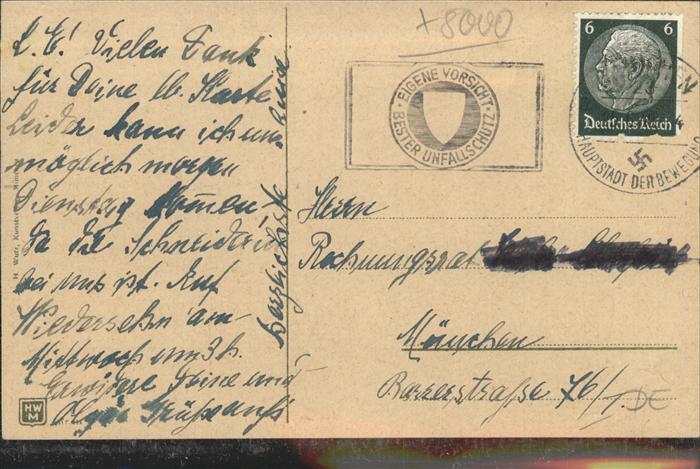 L. E! Vielen Dank
für Deine lb. Karte
Leider kann ich un-
möglich morgen
Dienstag kommen
da die Schneiderin
bei uns ist. Auf
Wiedersehn am
Mittwoch um 3 h.
Deine und
Grüße
herzlichste
+8000
EIGENE VORSICHT
BESTER UNFALLSCHUTZ
6 6
Deutsches Reich
HAUPTSTADT DER BEWEGUNG
Herrn
Rechnungsrat
München
Barerstraße 76/1
DE
HWM